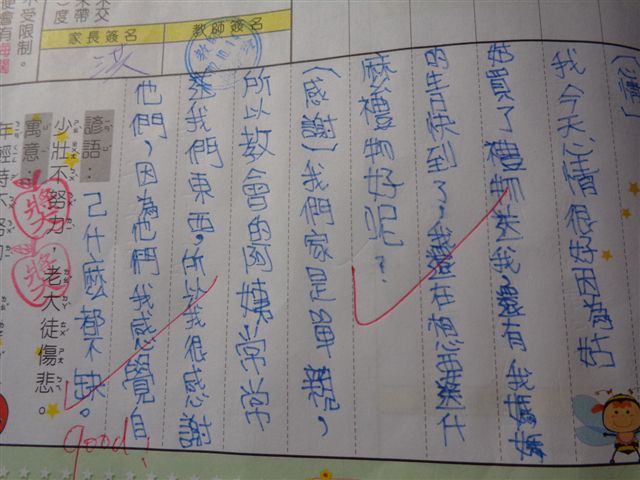 我今天心情很好因為好
買了禮物送我還有我
的生日快到了,我還在
麼禮物好呢?
(感謝)我們家是單親,
所以教會的阿姨常常
我們東西,所以我很感謝
他們,因為他們我感覺自
己什麼都不缺。
教師簽名
家長簽名
未交
未帶
度
不受限制。
便會有海闊
諺語:
少壯不努力,老大徒傷悲。
寓意:
年輕時不努力
獎
獎
good!